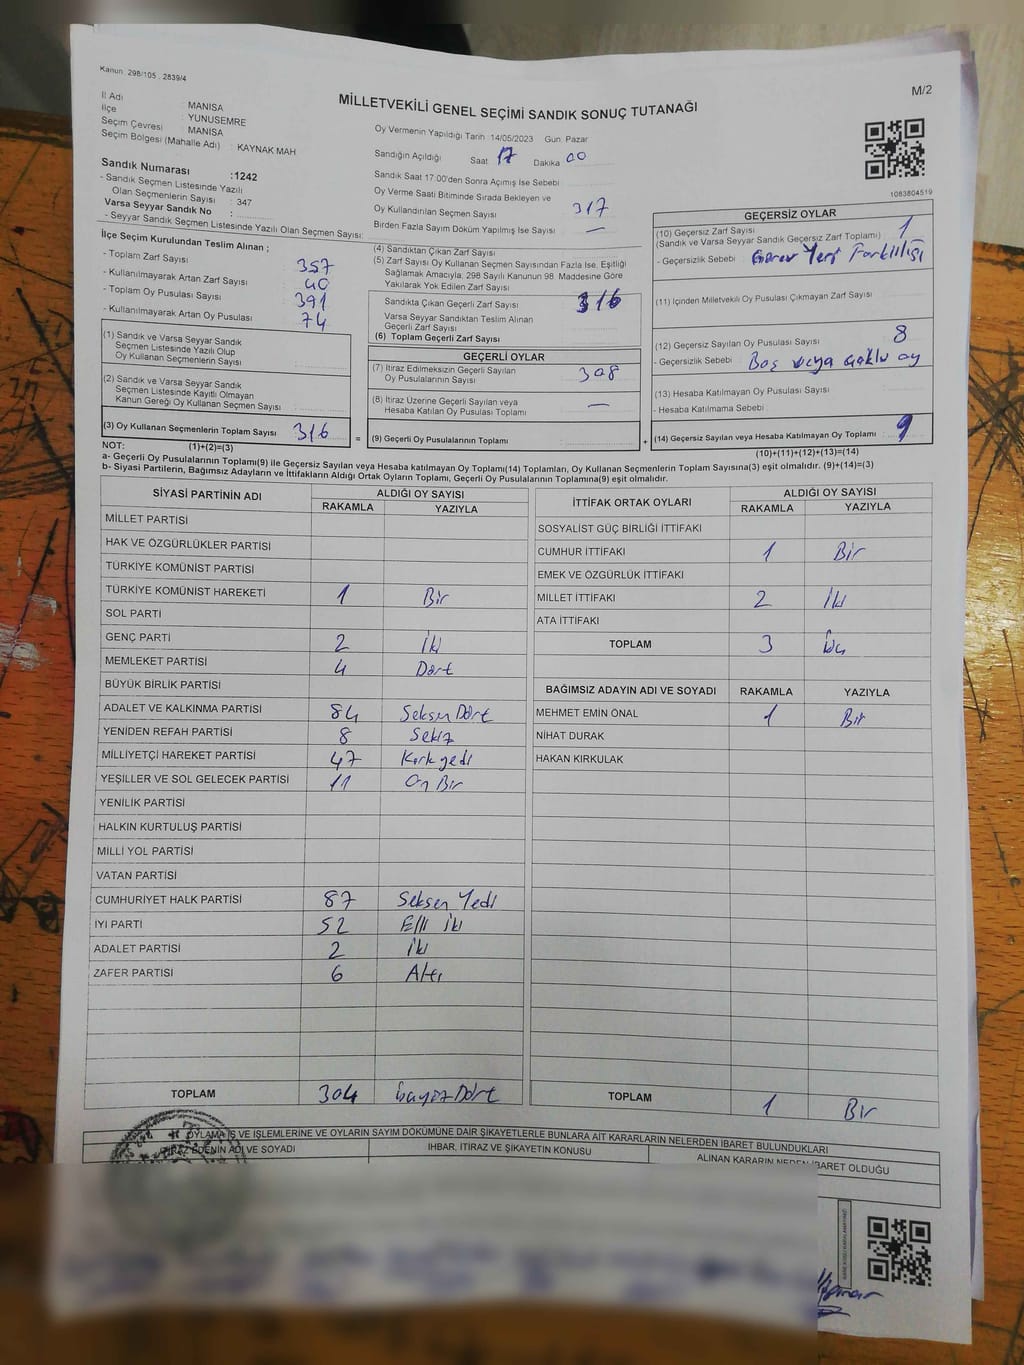 Kanun: 298/105 , 2839/4
M/2
MİLLETVEKİLİ GENEL SEÇİMİ SANDIK SONUÇ TUTANAĞI
İl Adı : MANİSA
İlçe : YUNUSEMRE
Seçim Çevresi : MANİSA
Seçim Bölgesi (Mahalle Adı) : KAYNAK MAH
Sandık Numarası :1242
- Sandık Seçmen Listesinde Yazılı
Olan Seçmenlerin Sayısı : 347
Varsa Seyyar Sandık No :
- Seyyar Sandık Seçmen Listesinde Yazılı Olan Seçmen Sayısı:
İlçe Seçim Kurulundan Teslim Alınan ;
- Toplam Zarf Sayısı 357
- Kullanılmayarak Artan Zarf Sayısı 40
- Toplam Oy Pusulası Sayısı 391
- Kullanılmayarak Artan Oy Pusulası 74
(1) Sandık ve Varsa Seyyar Sandık
Seçmen Listesinde Yazılı Olup
Oy Kullanan Seçmenlerin Sayısı
(2) Sandık ve Varsa Seyyar Sandık
Seçmen Listesinde Kayıtlı Olmayan
Kanun Gereği Oy Kullanan Seçmen Sayısı
(3) Oy Kullanan Seçmenlerin Toplam Sayısı 316
Oy Vermenin Yapıldığı Tarih :14/05/2023 Gün: Pazar
Sandığın Açıldığı Saat 17 Dakika 00
Sandık Saat 17:00'den Sonra Açılmış İse Sebebi
Oy Verme Saati Bitiminde Sırada Bekleyen ve
Oy Kullandırılan Seçmen Sayısı 317
Birden Fazla Sayım Döküm Yapılmış İse Sayısı —
(4) Sandıktan Çıkan Zarf Sayısı
(5) Zarf Sayısı Oy Kullanan Seçmen Sayısından Fazla İse, Eşitliği
Sağlamak Amacıyla, 298 Sayılı Kanunun 98. Maddesine Göre
Yakılarak Yok Edilen Zarf Sayısı
Sandıkta Çıkan Geçerli Zarf Sayısı 316
Varsa Seyyar Sandıktan Teslim Alınan
Geçerli Zarf Sayısı
(6) Toplam Geçerli Zarf Sayısı
GEÇERLİ OYLAR
(7) İtiraz Edilmeksizin Geçerli Sayılan
Oy Pusulalarının Sayısı 308
(8) İtiraz Üzerine Geçerli Sayılan veya
Hesaba Katılan Oy Pusulası Toplamı —
= (9) Geçerli Oy Pusulalarının Toplamı
1083804519
GEÇERSİZ OYLAR
(10) Geçersiz Zarf Sayısı 1
(Sandık ve Varsa Seyyar Sandık Geçersiz Zarf Toplamı)
- Geçersizlik Sebebi Görev Yeri Farklılığı
(11) İçinden Milletvekili Oy Pusulası Çıkmayan Zarf Sayısı
(12) Geçersiz Sayılan Oy Pusulası Sayısı 8
- Geçersizlik Sebebi Boş veya çoklu oy
(13) Hesaba Katılmayan Oy Pusulası Sayısı
- Hesaba Katılmama Sebebi
+ (14) Geçersiz Sayılan veya Hesaba Katılmayan Oy Toplamı 9
NOT: (1)+(2)=(3)
(10)+(11)+(12)+(13)=(14)
a- Geçerli Oy Pusulalarının Toplamı(9) ile Geçersiz Sayılan veya Hesaba katılmayan Oy Toplamı(14) Toplamları, Oy Kullanan Seçmenlerin Toplam Sayısına(3) eşit olmalıdır. (9)+(14)=(3)
b- Siyasi Partilerin, Bağımsız Adayların ve İttifakların Aldığı Ortak Oyların Toplamı, Geçerli Oy Pusulalarının Toplamına(9) eşit olmalıdır.
SİYASİ PARTİNİN ADI ALDIĞI OY SAYISI
RAKAMLA YAZIYLA
MİLLET PARTİSİ
HAK VE ÖZGÜRLÜKLER PARTİSİ
TÜRKİYE KOMÜNİST PARTİSİ
TÜRKİYE KOMÜNİST HAREKETİ 1 Bir
SOL PARTİ
GENÇ PARTİ 2 İki
MEMLEKET PARTİSİ 4 Dört
BÜYÜK BİRLİK PARTİSİ
ADALET VE KALKINMA PARTİSİ 84 Seksen Dört
YENİDEN REFAH PARTİSİ 8 Sekiz
MİLLİYETÇİ HAREKET PARTİSİ 47 Kırk yedi
YEŞİLLER VE SOL GELECEK PARTİSİ 11 On Bir
YENİLİK PARTİSİ
HALKIN KURTULUŞ PARTİSİ
MİLLİ YOL PARTİSİ
VATAN PARTİSİ
CUMHURİYET HALK PARTİSİ 87 Seksen Yedi
İYİ PARTİ 52 Elli İki
ADALET PARTİSİ 2 İki
ZAFER PARTİSİ 6 Altı
TOPLAM 304 üçyüz Dört
İTTİFAK ORTAK OYLARI ALDIĞI OY SAYISI
RAKAMLA YAZIYLA
SOSYALİST GÜÇ BİRLİĞİ İTTİFAKI
CUMHUR İTTİFAKI 1 Bir
EMEK VE ÖZGÜRLÜK İTTİFAKI
MİLLET İTTİFAKI 2 İki
ATA İTTİFAKI
TOPLAM 3 üç
BAĞIMSIZ ADAYIN ADI VE SOYADI RAKAMLA YAZIYLA
MEHMET EMİN ÖNAL 1 Bir
NİHAT DURAK
HAKAN KIRKULAK
TOPLAM 1 Bir
OYLAMA İŞ VE İŞLEMLERİNE VE OYLARIN SAYIM DÖKÜMÜNE DAİR ŞİKAYETLERLE BUNLARA AİT KARARLARIN NELERDEN İBARET BULUNDUKLARI
İTİRAZ EDENİN ADI VE SOYADI İHBAR, İTİRAZ VE ŞİKAYETİN KONUSU ALINAN KARARIN NEDEN İBARET OLDUĞU